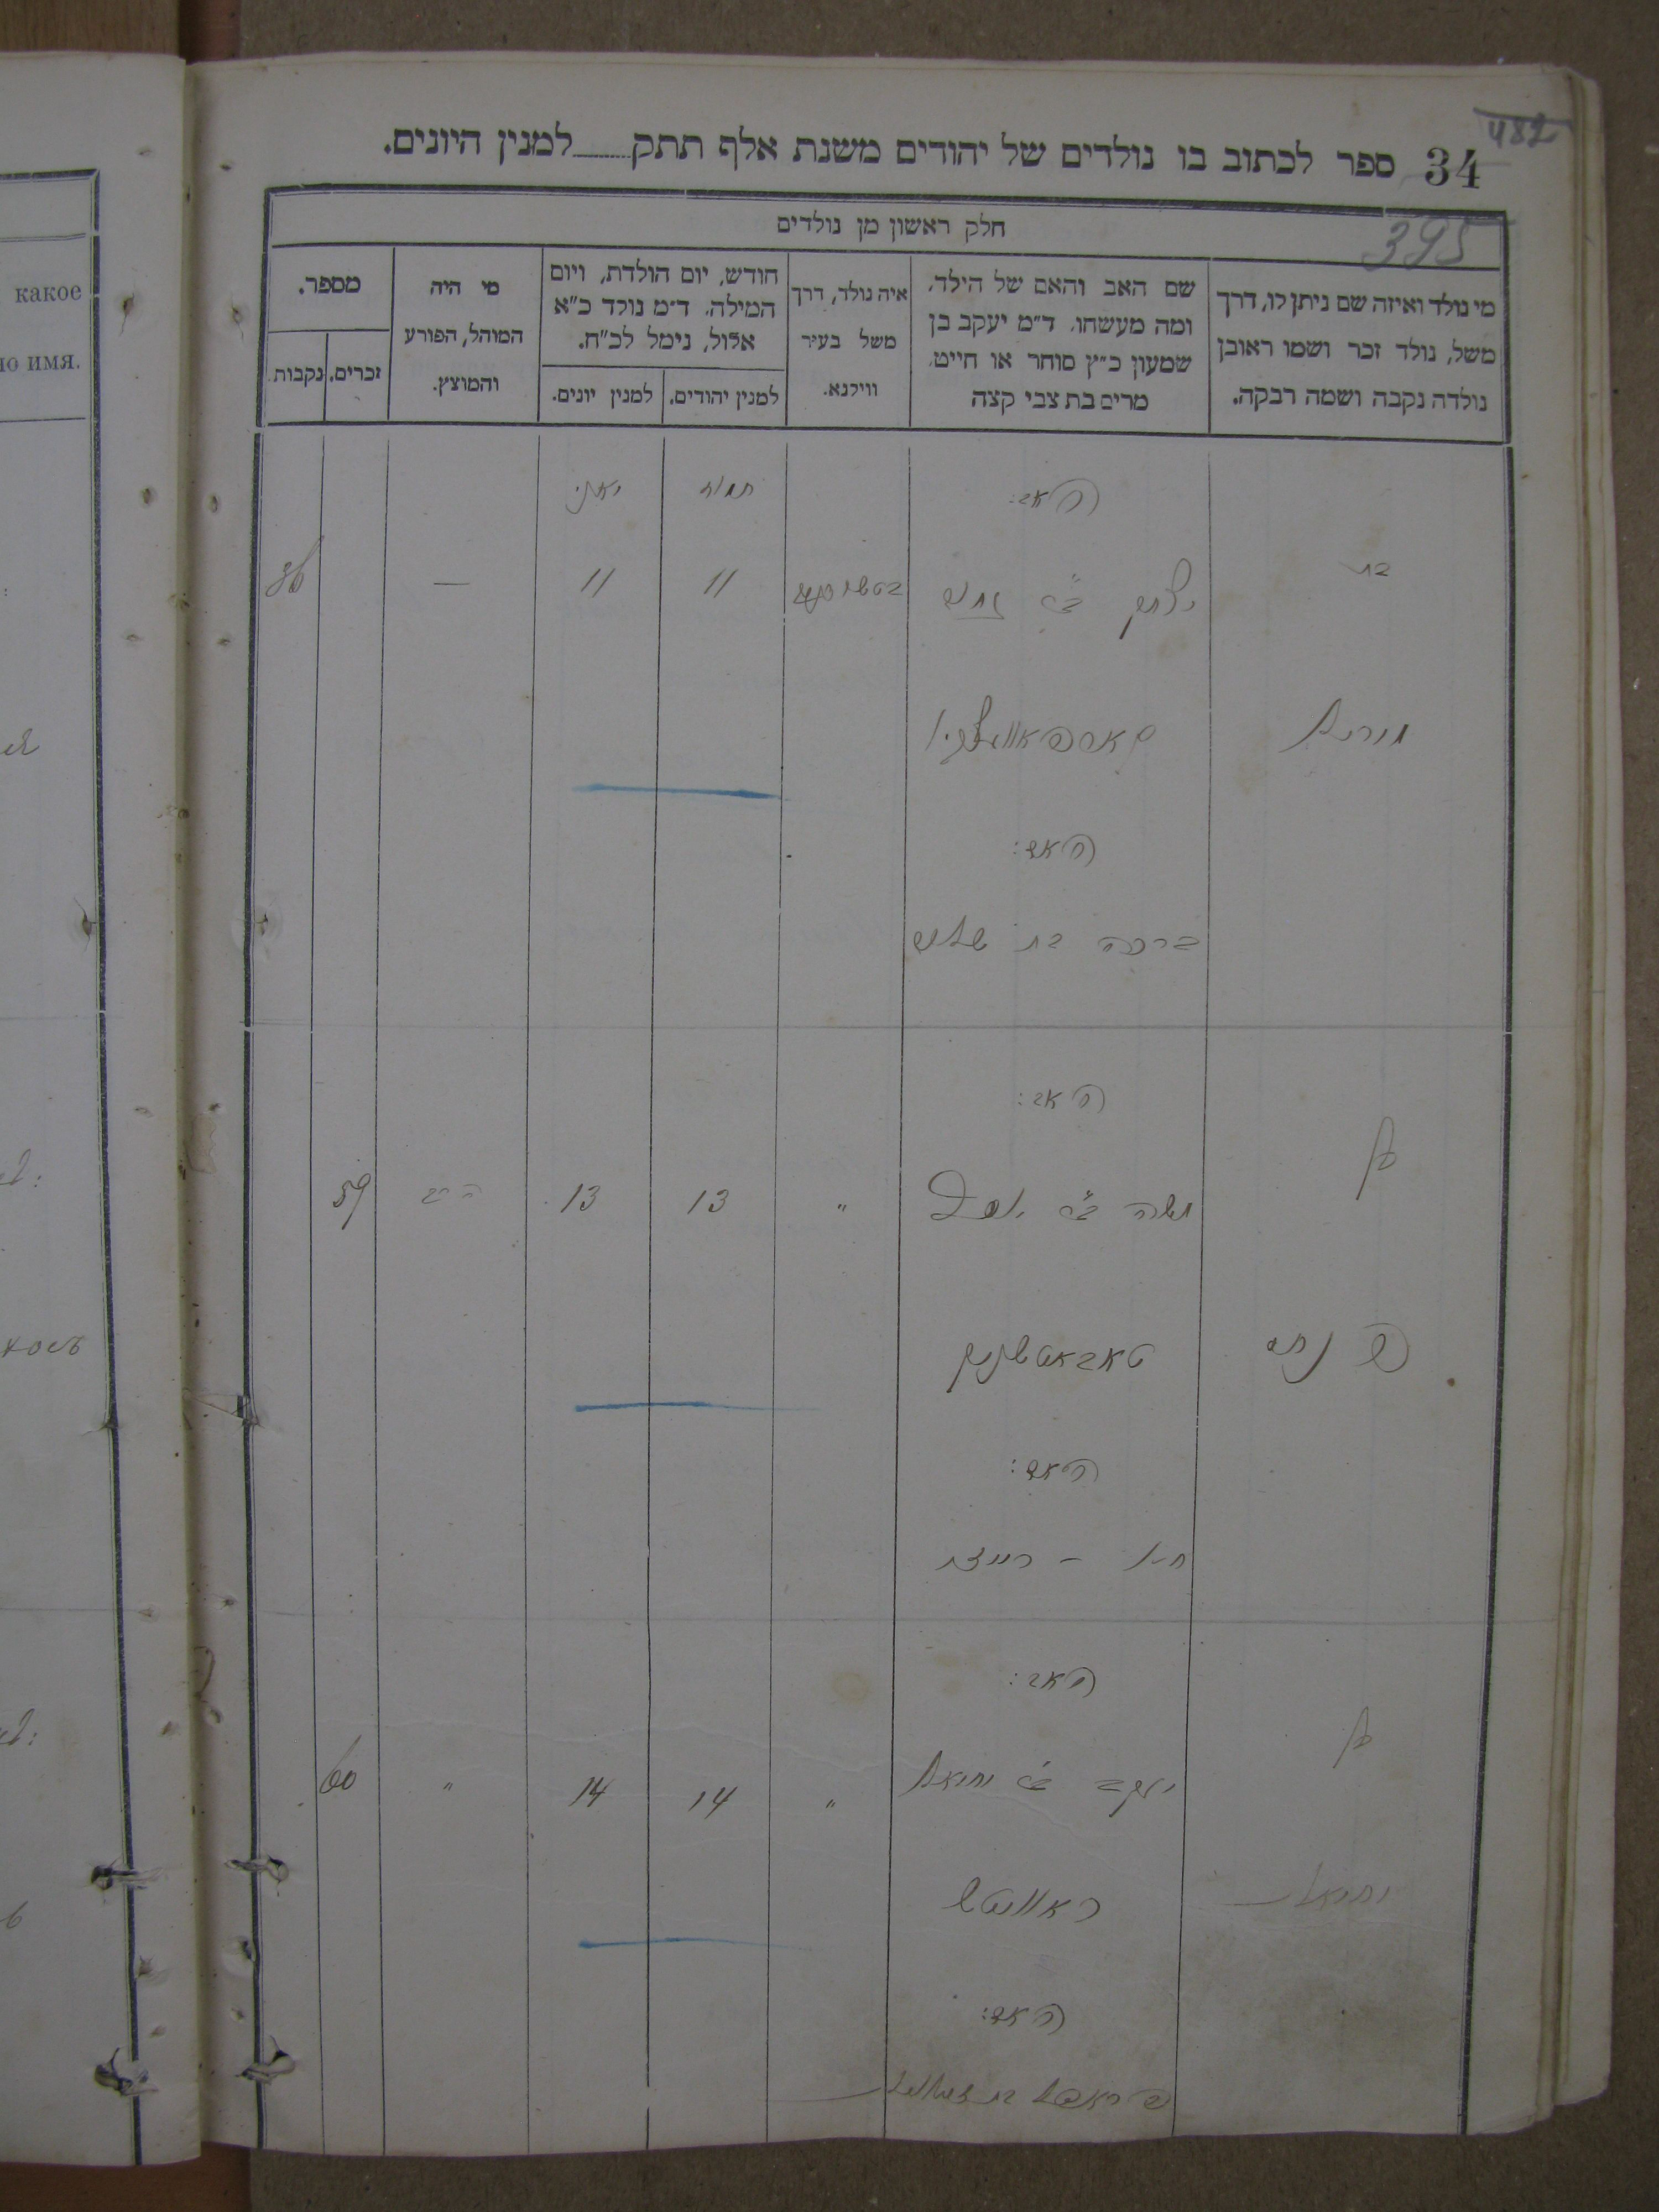 482
34 ספר לכתוב בו נולדים של יהודים משנת אלף תתק למנין היונים.
395
חלק ראשון מן נולדים
מי נולד ואיזה שם ניתן לו, דרך
משל, נולד זכר ושמו ראובן
נולדה נקבה ושמה רבקה.
שם האב והאם של הילד,
ומה מעשהו. ד״מ יעקב בן
שמעון כ״ץ סוחר או חייט.
מרים בת צבי קצה
איה נולד, דרך
משל בעיר
ווילנא.
חודש, יום הולדת, ויום
המילה. ד״מ נולד כ״א
אלול, נימל לכ״ח.
למנין יהודים. למנין יונים.
מי היה
המוהל, הפורע
והמוצץ.
מספר.
זכרים. נקבות.
какое
но имя.
האב: תמוז יאני
בת יצחק ב״ר נחום 11 11 —
האם:
ברכה בת שלום
האב:
בן משה ב״ר יוסף " 13 13 59
פנחס
האם:
חיה -
האב:
בן יעקב ב״ר יחיאל " 14 14 " 60
יחיאל
האם: